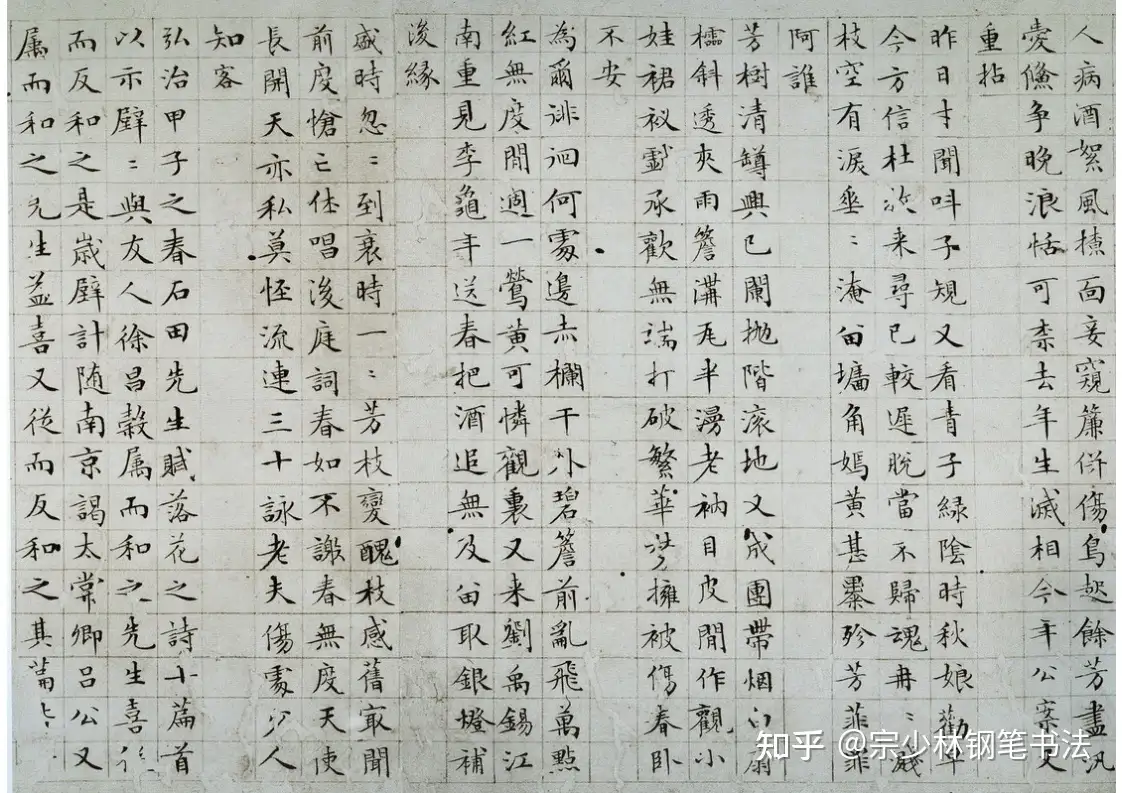 人病酒絮風面妾窺簾併傷鳥趂餘芳盡汎
愛儵争晚浪恬可柰去年生滅相今年公案又
重拈
昨日才聞呌子規又看青子緑陰時秋娘勸早
今方信杜牧来尋已較遲脫當不歸魂冉:濺
枝空有淚垂:淹留墻角嫣黄甚殄芳菲
阿誰
芳樹清罇興已闌抛階滚地又成團帶烟扇
櫺斜透夾雨簷溝瓦半漫老衲目皮閒作觀小
娃裙衩戲承歡無端打破繁華夢擁被傷春卧
不安
為爾徘徊何處邊赤欄干外碧簷前亂飛萬點
紅無度閒過一鶯黄可憐觀裏又来劉禹錫江
南重見李龜年送春把酒追無及留取銀燈補
後緣
盛時忽:到衰時一:芳枝變醜枝感舊最聞
前度愴亡休唱後庭詞春如不謝春無度天使
長開天亦私莫恠流連三十詠老夫傷處少人
知客
弘治甲子之春石田先生賦落花之詩十篇首
以示璧:與友人徐昌榖属而和之先生喜從
而反和之是歲璧計随南京謁太常卿吕公又
属而和之先生益喜又從而反和之其篇
知乎 @宗少林钢笔书法